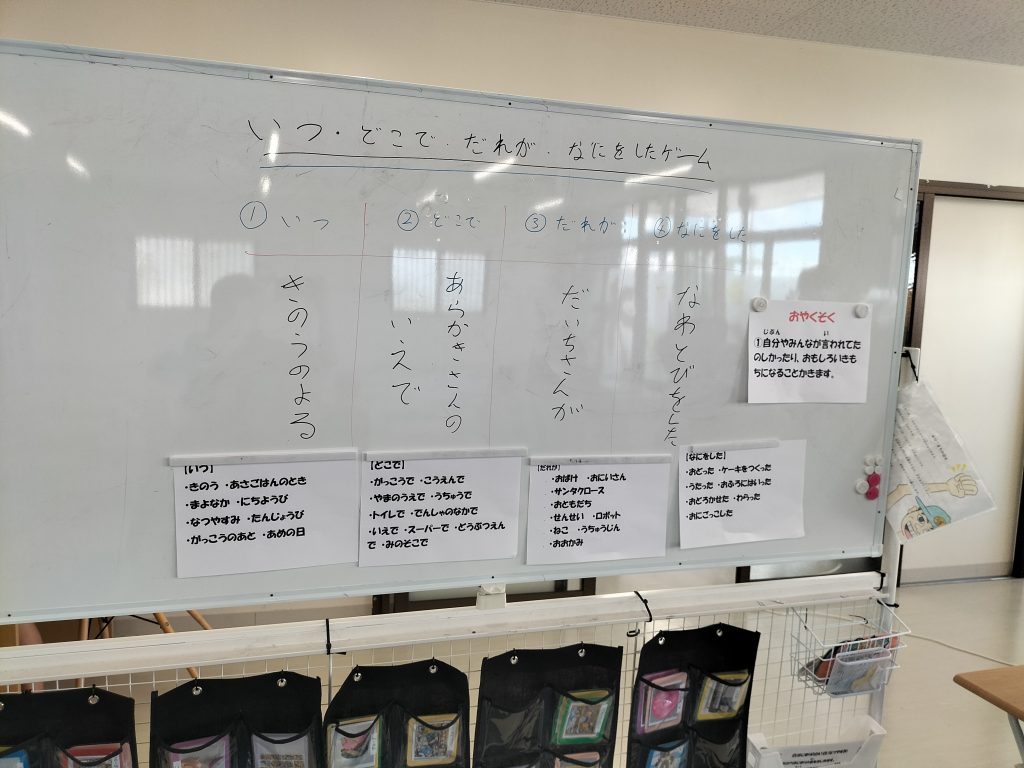 いつ・どこで・だれが・なにをしたゲーム
① いつ
② どこで
③ だれが
④ なにをした
きのうのよる
あらかきさんの
いえで
だいちさんが
なわとびをした
おやくそく
じぶん い
①自分やみんなが言われてた
のしかったり、おもしろいきも
ちになることかきます。
【いつ】
・きのう ・あさごはんのとき
・まよなか ・にちようび
・なつやすみ ・たんじょうび
・がっこうのあと ・あめの日
【どこで】
・がっこうで ・こうえんで
・やまのうえで ・うちゅうで
・トイレで ・でんしゃのなかで
・いえで ・スーパーで ・どうぶつえん
で ・みのそこで
【だれが】
・おばけ ・おにいさん
・サンタクロース
・おともだち
・せんせい ・ロボット
・ねこ ・うちゅうじん
・おおかみ
【なにをした】
・おどった ・ケーキをつくった
・うたった ・おふろにはいった
・おどろかせた ・わらった
・おにごっこした